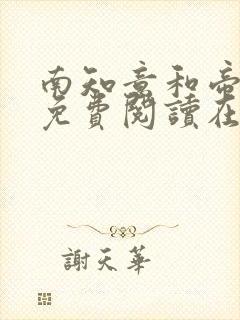 南知意和帝
免費閱讀在
謝天華